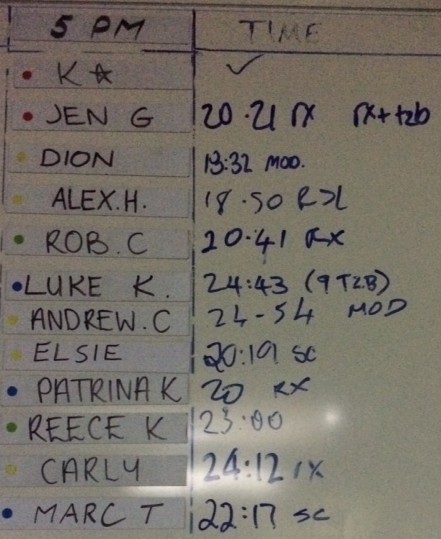 5 PM TIME
K ☆ ✓
JEN G 20.21 rx rx+t2b
DION 13:32 MOD.
ALEX.H. 18.50 RX
ROB.C 20.41 RX
LUKE K. 24:43 (9 T2B)
ANDREW.C 24-54 MOD
ELSIE 20:19 SC
PATRINA K 20 RX
REECE K 23:00
CARLY 24:12 rx
MARC T 22:17 SC